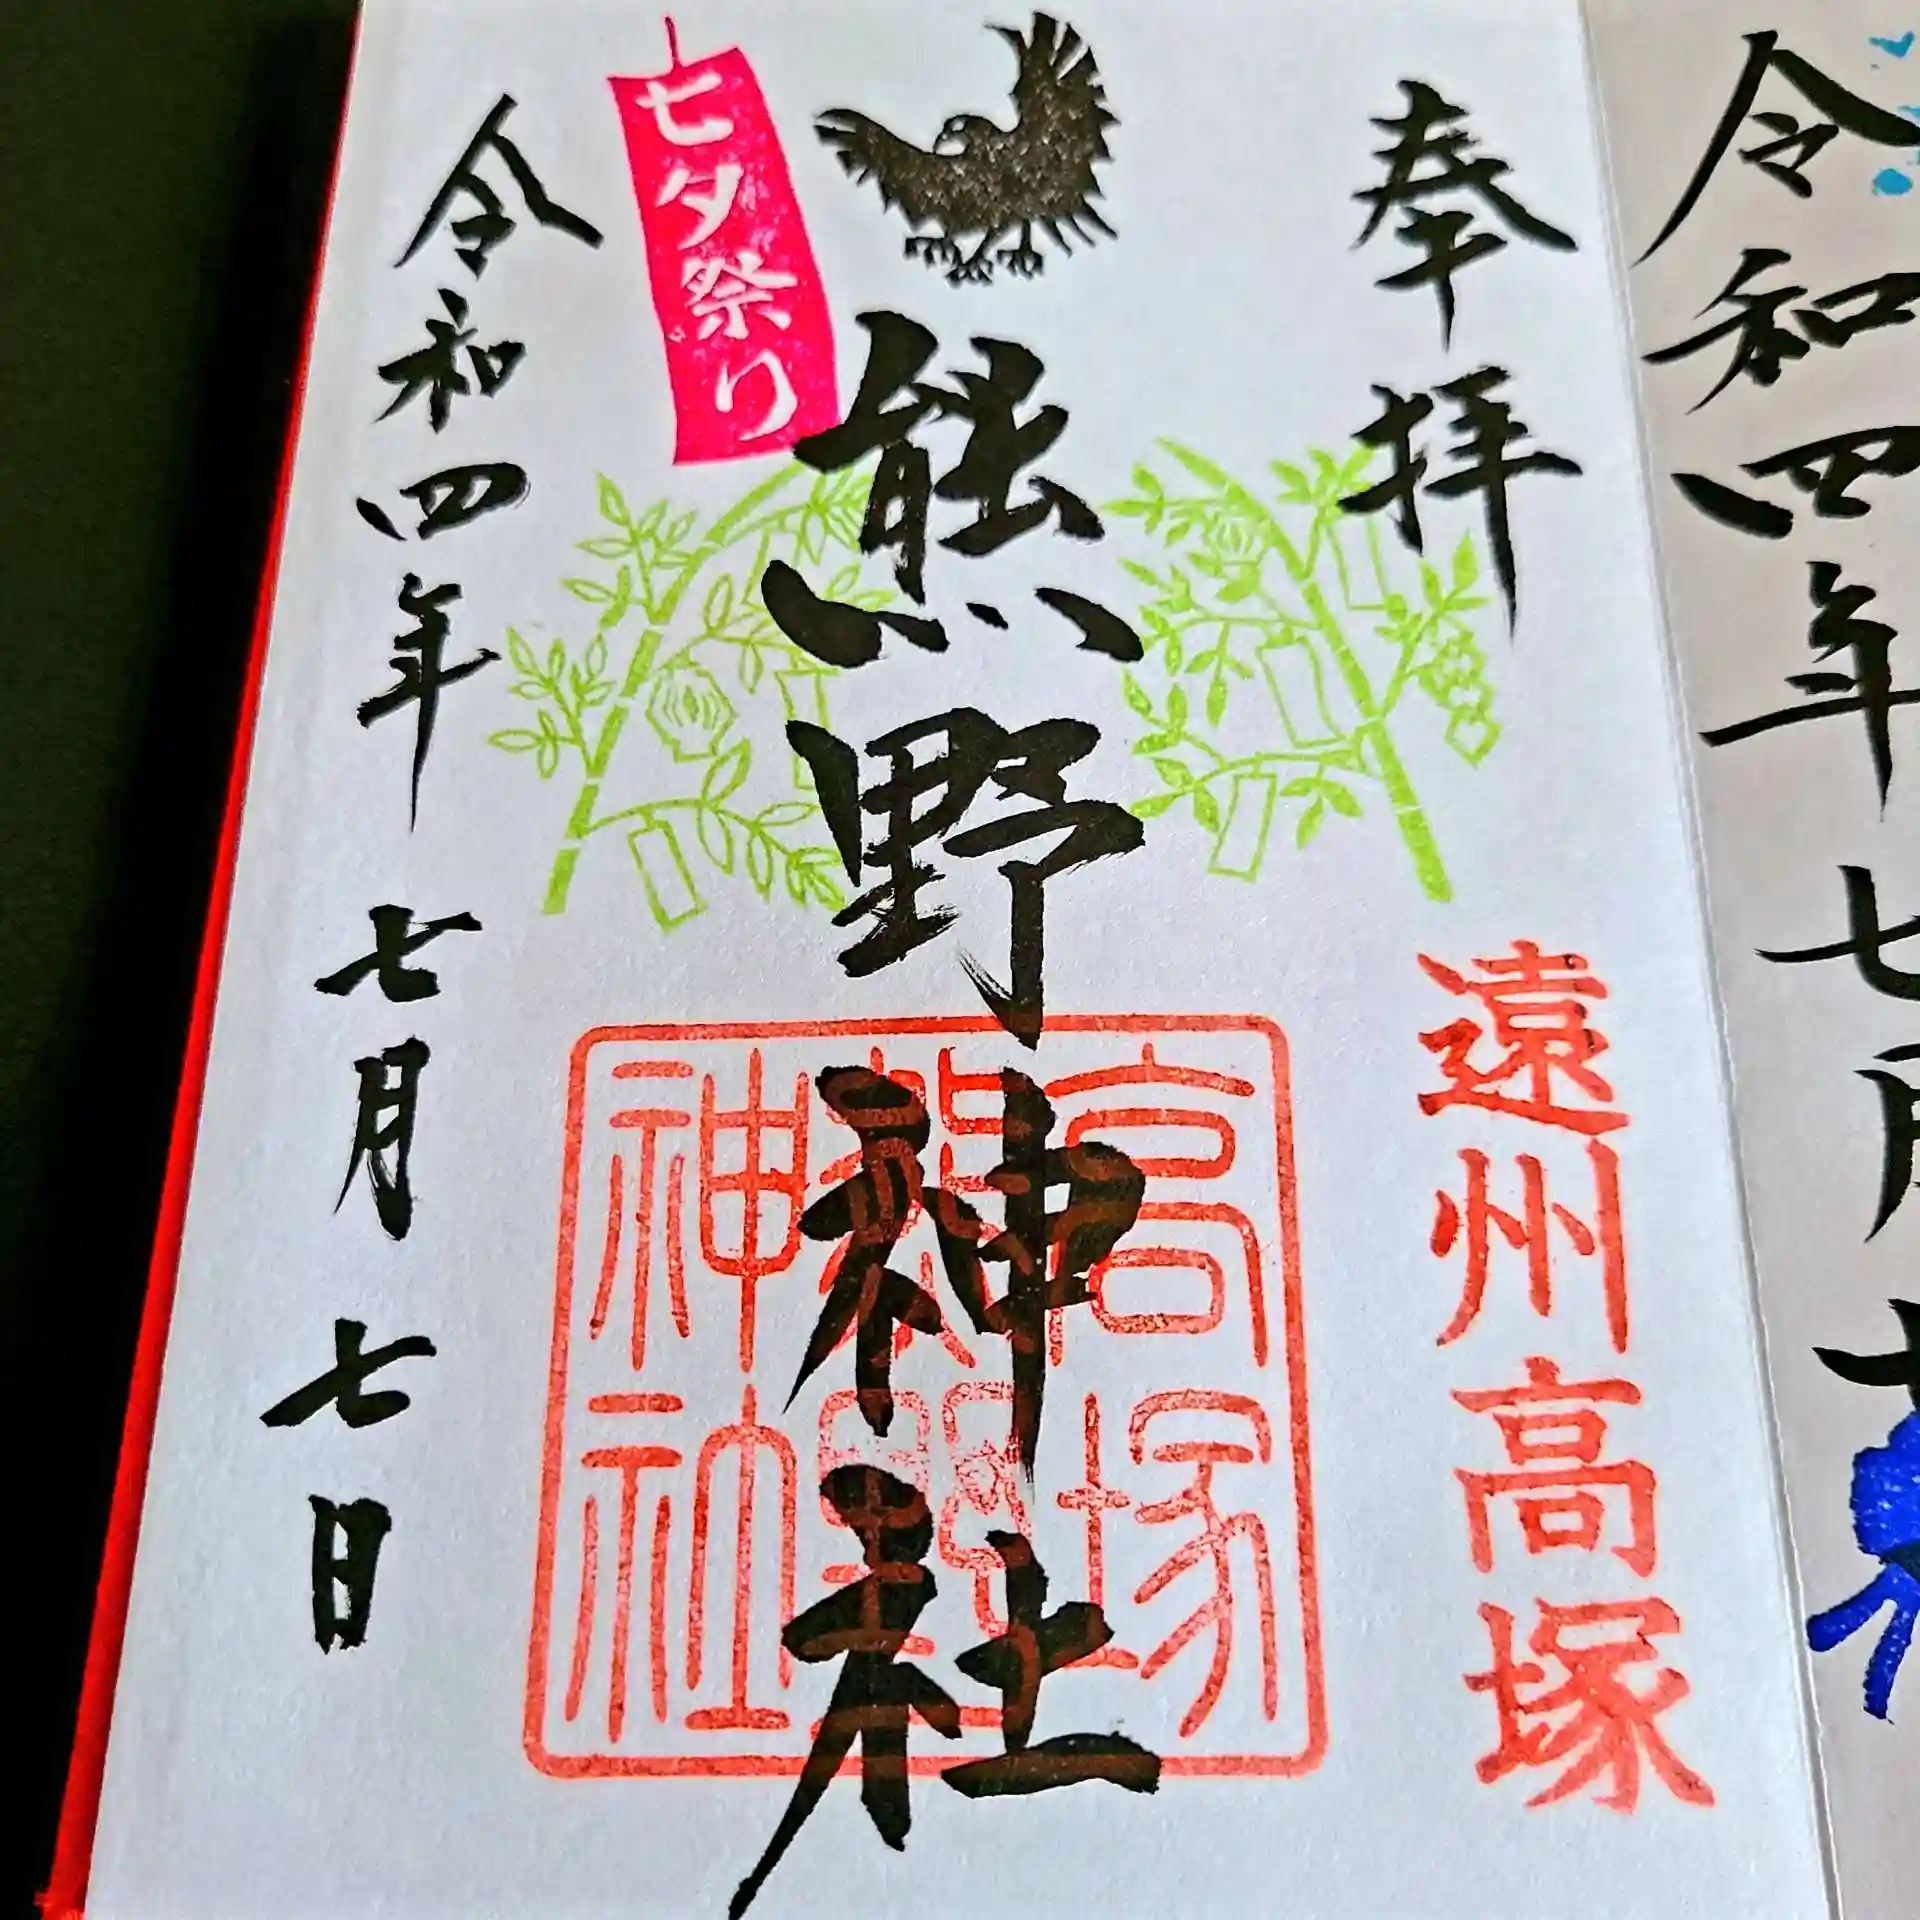 令和四年七月七
奉拝
遠州高塚
熊野神社
高塚
熊野
神社
七夕祭り
令和四年七月七日